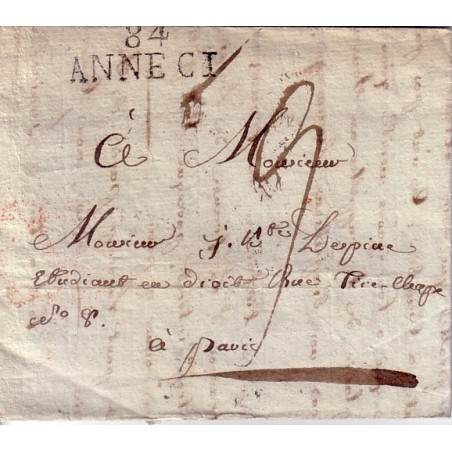 84
ANNECI
à Monsieur
9
Monsieur j. Bte Lespine
Etudiant en droit Rue Tire-Chape
No 8.
à paris